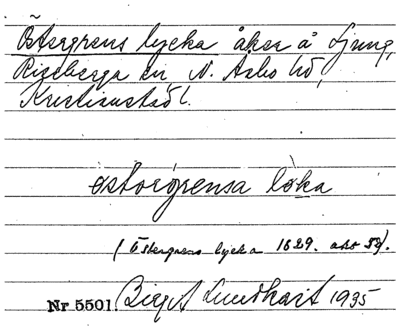 Östergrens lycka åker å Ljung,
Riseberga sn, N. Åsbo hd,
Kristianstad l.
östərgrensa løka
(Östergrens lycka 1629. ako 59).
Nr 5501. Birgit Lundkvist 1935